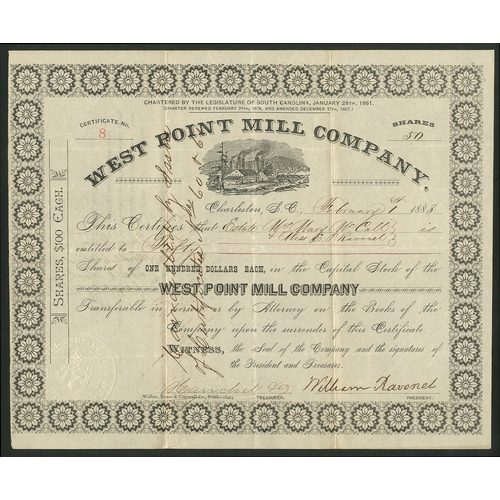 CHARTERED BY THE LEGISLATURE OF SOUTH CAROLINA, JANUARY 28TH, 1861.
(CHARTER RENEWED FEBRUARY 24TH, 1876, AND AMENDED DECEMBER 17TH, 1887.)
CERTIFICATE No.
8
SHARES
50
WEST POINT MILL COMPANY.
Charleston, S.C., February 1 1888
This Certifies that Estate Mary
Miss Ravenel
is
entitled to Fifty
Shares of ONE HUNDRED DOLLARS EACH, in the Capital Stock of the
WEST POINT MILL COMPANY
Transferable in person or by Attorney on the Books of the
Company upon the surrender of this Certificate.
WITNESS, the Seal of the Company and the signatures of
the President and Treasurer.
William Ravenel
Walker, Evans & Cogswell Co., Print
TREASURER.
PRESIDENT.
SHARES, $100 EACH.